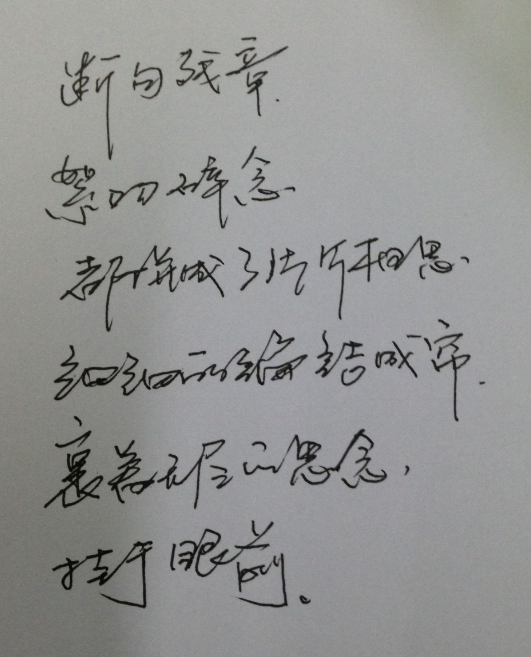 断句残章.
絮叨碎念.
都悔成了片片相思.
细细的编结成帘.
裹着无尽的思念,
挂于眼前。